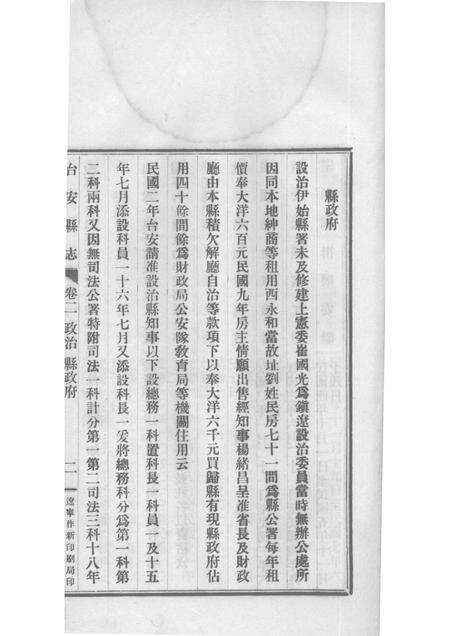 縣政府
設治伊始縣署未及修建上憲委崔國光爲鎭遼設治委員當時無辦公處所
因同本地紳商等租用西永和當故址劉姓民房七十一間爲縣公署每年租
價奉大洋六百元民國九年房主情願出售經知事楊緒昌呈准省長及財政
廳由本縣積欠解廳自治等款項下以奉大洋六千元買歸縣有現縣政府佔
用四十餘間餘爲財政局公安隊敎育局等機關住用云
民國二年台安請准設治縣知事以下設總務一科置科長一科員一及十五
年七月添設科員一十六年七月又添設科長一爰將總務科分爲第一科第
二科兩科又因無司法公署特附司法一科計分第一第二司法三科十八年
台安縣志
卷二
政治
縣政府
二
遼寧作新印刷局印